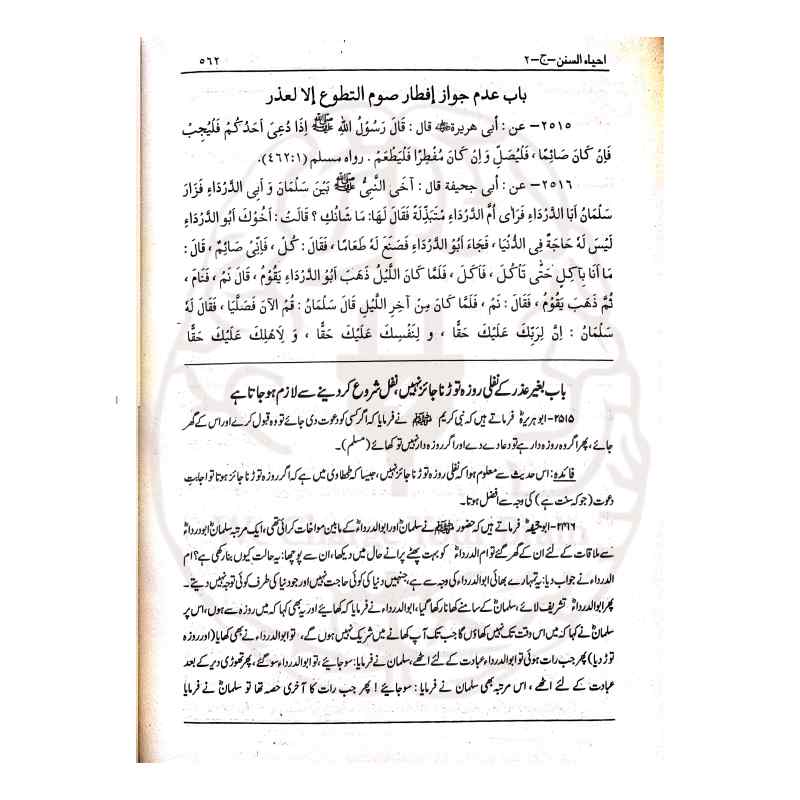 احیاء السنن - ج - ۲ ۵۶۲
باب عدم جواز إفطار صوم التطوع إلا لعذر
۲۵۱۵- عن : أبی هریرة ؓ قال : قَالَ رَسُوْلُ اللهِ ﷺ اِذَا دُعِیَ اَحَدُكُمْ فَلْیُجِبْ
فَاِنْ كَانَ صَائِمًا ، فَلْیُصَلِّ وَ اِنْ كَانَ مُفْطِرًا فَلْیَطْعَمْ . رواه مسلم (۱:۴۶۲).
۲۵۱۶- عن : أبی جحیفة قال : آخَی النَّبِیُّ ﷺ بَیْنَ سَلْمَانَ وَ اَبِی الدَّرْدَاءِ فَزَارَ
سَلْمَانُ اَبَا الدَّرْدَاءِ فَرَاٰی اُمَّ الدَّرْدَاءِ مُتَبَذِّلَةً فَقَالَ لَهَا: مَا شَانُكِ ؟ قَالَتْ : اَخُوْكَ اَبُو الدَّرْدَاءِ
لَیْسَ لَهٗ حَاجَةٌ فِی الدُّنْیَا ، فَجَاءَ اَبُو الدَّرْدَاءِ فَصَنَعَ لَهٗ طَعَامًا ، فَقَالَ : كُلْ ، فَاِنِّیْ صَائِمٌ ، قَالَ :
مَا اَنَا بِآكِلٍ حَتّٰی تَاْكُلَ ، فَاَكَلَ ، فَلَمَّا كَانَ اللَّیْلُ ذَهَبَ اَبُو الدَّرْدَاءِ یَقُوْمُ ، قَالَ نَمْ ، فَنَامَ ،
ثُمَّ ذَهَبَ یَقُوْمُ ، فَقَالَ : نَمْ ، فَلَمَّا كَانَ مِنْ آخِرِ اللَّیْلِ قَالَ سَلْمَانُ : قُمْ الآنَ فَصَلَّیَا ، فَقَالَ لَهٗ
سَلْمَانُ : اِنَّ لِرَبِّكَ عَلَیْكَ حَقًّا ، و لِنَفْسِكَ عَلَیْكَ حَقًّا ، وَ لِاَهْلِكَ عَلَیْكَ حَقًّا
باب بغیر عذر کے نفلی روزہ توڑنا جائز نہیں، نفل شروع کر دینے سے لازم ہو جاتا ہے
۲۵۱۵- ابو ہریرہؓ فرماتے ہیں کہ نبی کریم ﷺ نے فرمایا کہ اگر کسی کو دعوت دی جائے تو وہ قبول کرے اور اس کے گھر
جائے، پھر اگر وہ روزہ دار ہے تو دعا دے دے اور اگر روزہ دار نہیں تو کھائے (مسلم)۔
فائدہ: اس حدیث سے معلوم ہوا کہ نفلی روزہ توڑنا جائز نہیں، جیسا کہ طحطاوی میں ہے کہ اگر روزہ توڑنا جائز ہوتا تو اجابتِ
دعوت (جو کہ سنت ہے) کی وجہ سے افضل ہوتا۔
۲۳۹۶- ابو جحیفہؓ فرماتے ہیں کہ حضور ﷺ نے سلمانؓ اور ابوالدرداءؓ کے مابین مواخات کرائی تھی، ایک مرتبہ سلمانؓ ابودرداءؓ
سے ملاقات کے لئے ان کے گھر گئے تو ام الدرداءؓ کو بہت پھٹے پرانے حال میں دیکھا، ان سے پوچھا: یہ حالت کیوں بنا رکھی ہے؟ ام
الدرداء نے جواب دیا: یہ تمہارے بھائی ابوالدرداء کی وجہ سے ہے، جنہیں دنیا کی کوئی حاجت نہیں اور جو دنیا کی طرف کوئی توجہ نہیں دیتے۔
پھر ابوالدرداءؓ تشریف لائے، سلمانؓ کے سامنے کھانا رکھا گیا، ابوالدرداء نے فرمایا کہ کھائیے اور یہ بھی کہا کہ میں روزہ سے ہوں، اس پر
سلمانؓ نے کہا کہ میں اس وقت تک نہیں کھاؤں گا جب تک آپ کھانے میں شریک نہیں ہوں گے، تو ابوالدرداء نے بھی کھایا (اور روزہ
توڑ دیا) پھر جب رات ہوئی تو ابوالدرداء عبادت کے لئے اٹھے، سلمان نے فرمایا: سو جائیے، تو ابوالدرداء سو گئے، پھر تھوڑی دیر کے بعد
عبادت کے لئے اٹھے، اس مرتبہ بھی سلمان نے فرمایا : سو جائیے ! پھر جب رات کا آخری حصہ تھا تو سلمانؓ نے فرمایا